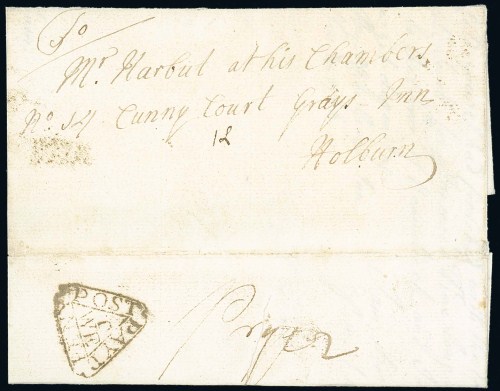 To
Mr Harbut at his Chambers
No. 14 Cunny Court Grays Inn
12
Holburn
POST PAYD